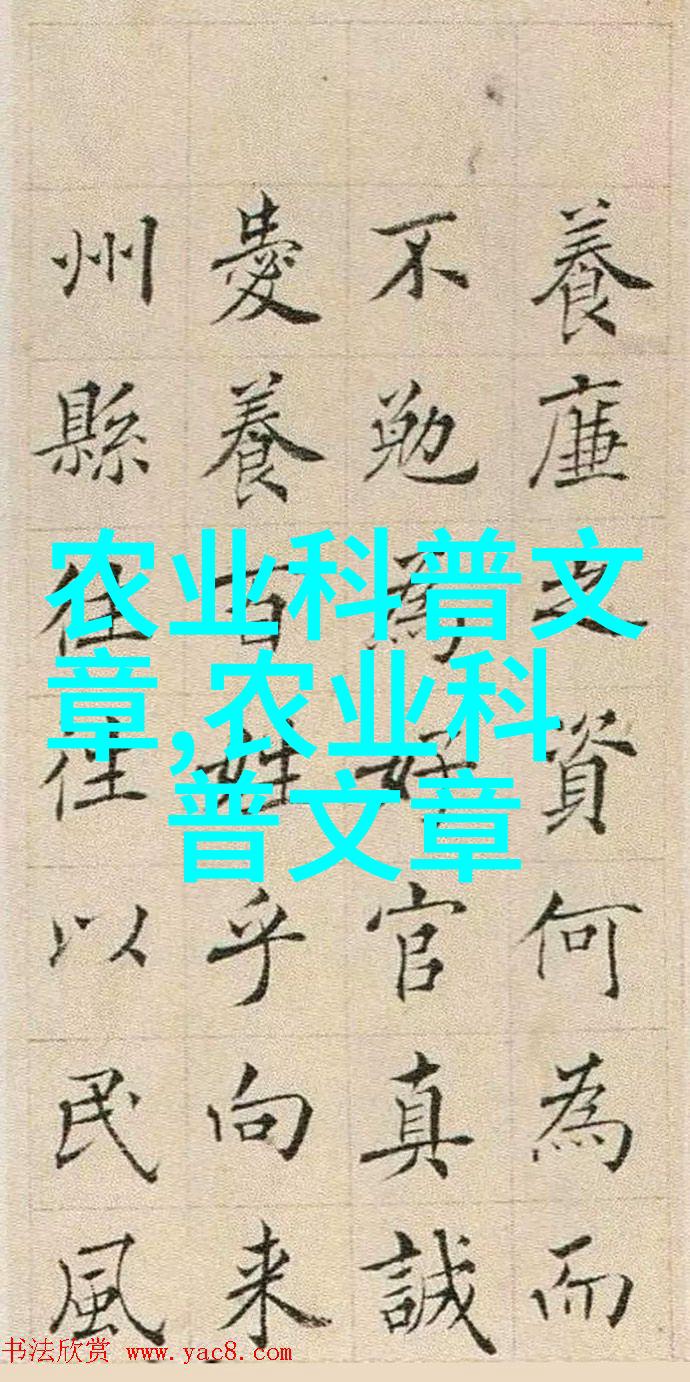 養廉之資何為而
不勉為好官真誠
愛養百姓乎向来
州縣往往以民風
农业科普文
章,农业科
普文章
书法欣赏 www.yac8.com